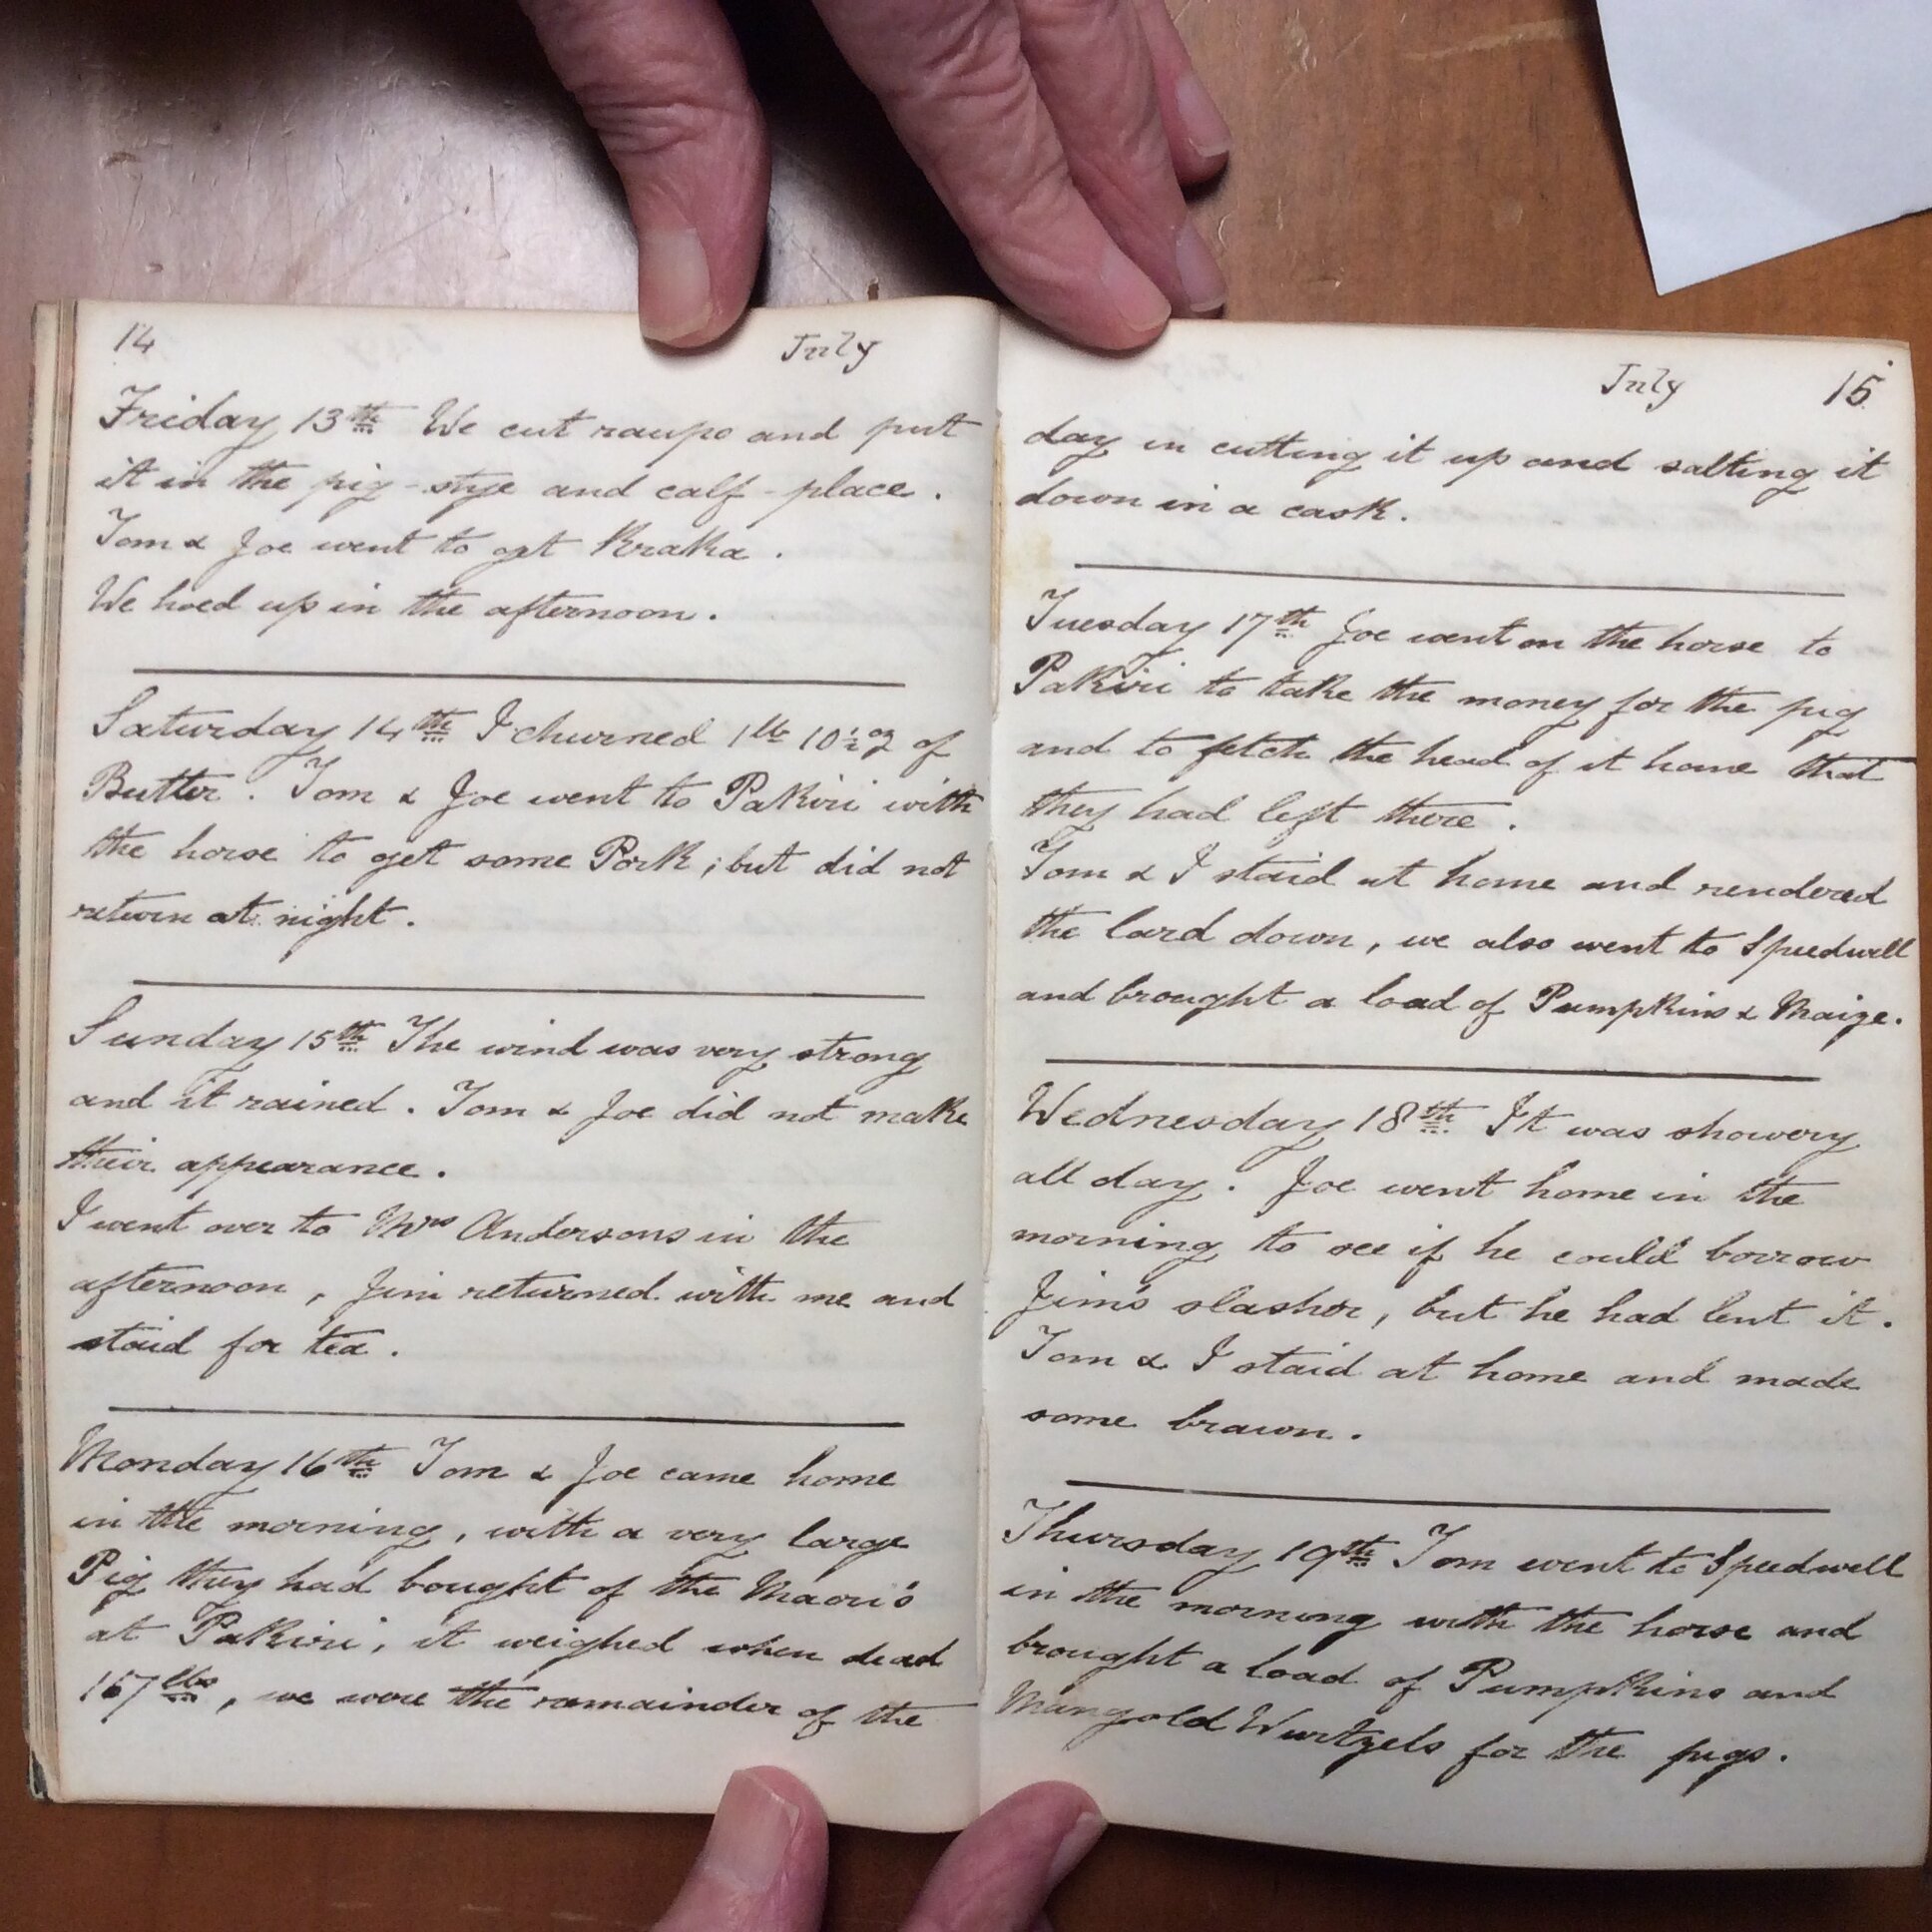 14 July
Friday 13th We cut raupo and put
it in the pig-stye and calf-place.
Tom & Joe went to get Kraka.
We hoed up in the afternoon.
Saturday 14th I churned 1lb 10½oz of
Butter. Tom & Joe went to Pakiri with
the horse to get some Pork; but did not
return at night.
Sunday 15th The wind was very strong
and it rained. Tom & Joe did not make
their appearance.
I went over to Mrs Andersons in the
afternoon, Jim returned with me and
staid for tea.
Monday 16th Tom & Joe came home
in the morning, with a very large
Pig they had bought of the Maori's
at Pakiri, it weighed when dead
167lbs, we were the remainder of the
July 15
day in cutting it up and salting it
down in a cask.
Tuesday 17th Joe went on the horse to
Pakiri to take the money for the pig
and to fetch the head of it home that
they had left there.
Tom & I staid at home and rendered
the lard down, we also went to Speedwell
and brought a load of Pumpkins & Maize.
Wednesday 18th It was showery
all day. Joe went home in the
morning to see if he could borrow
Jim's slasher, but he had lent it.
Tom & I staid at home and made
some brawn.
Thursday 19th Tom went to Speedwell
in the morning with the horse and
brought a load of Pumpkins and
Mangold Wurtzels for the pigs.